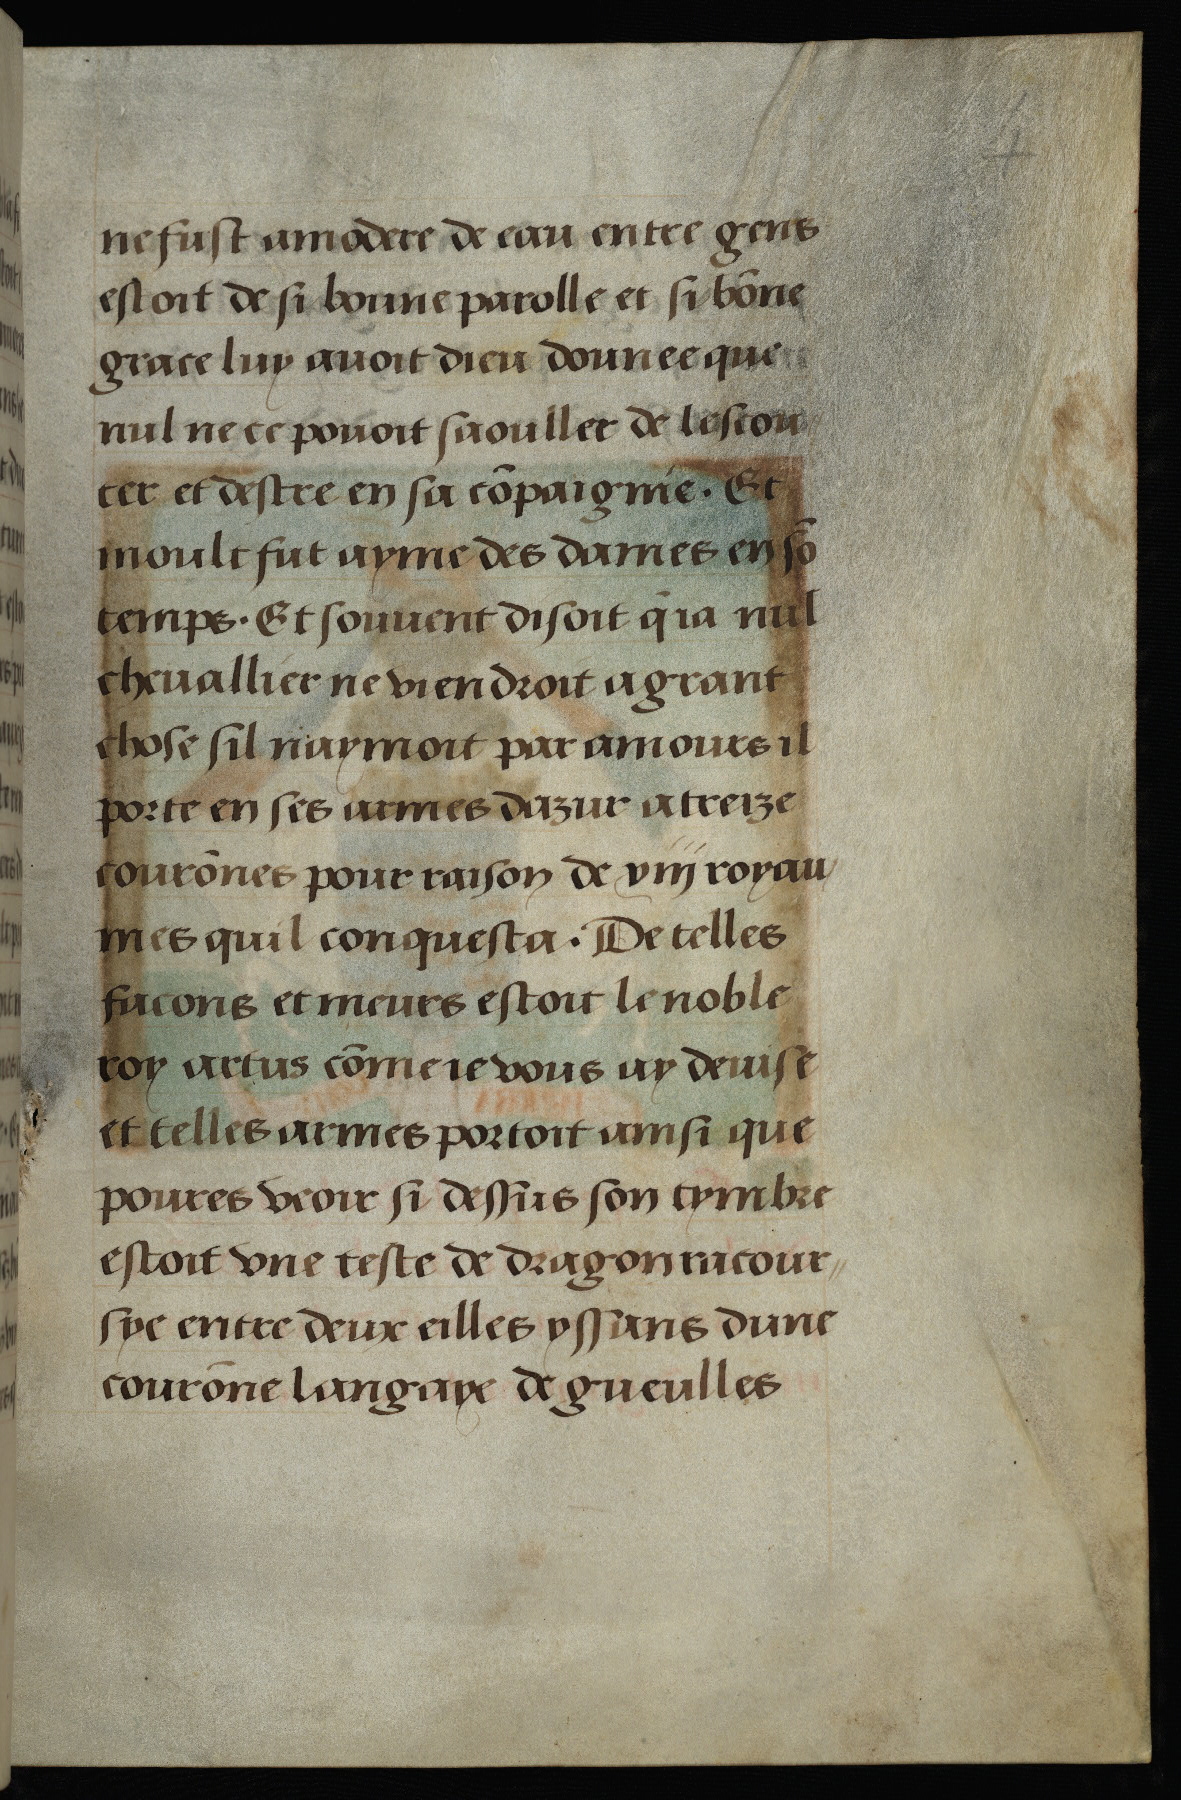 ne fust amodere de eau entre gens
estoit de si bonne parolle et si bōne
grace luy auoit dieu donnee que
nul ne ce pouoit saouller de lescou
ter et destre en sa cōpaignie. Et
moult fut ayme des dames en sō
temps. Et souuent disoit q̄ ia nul
cheuallier ne viendroit a grant
chose sil naymoit par amours il
porte en ses armes dazur a treize
courōnes pour raison de viij royau
mes quil conquesta. De telles
facons et meurs estoit le noble
roy artus cōme ie vous ay deuise
et telles armes portoit ainsi que
poures veoir si dessus son tymbre
estoit vne teste de dragon racour
sye entre deux eilles yssans dune
courōne langaye de gueulles